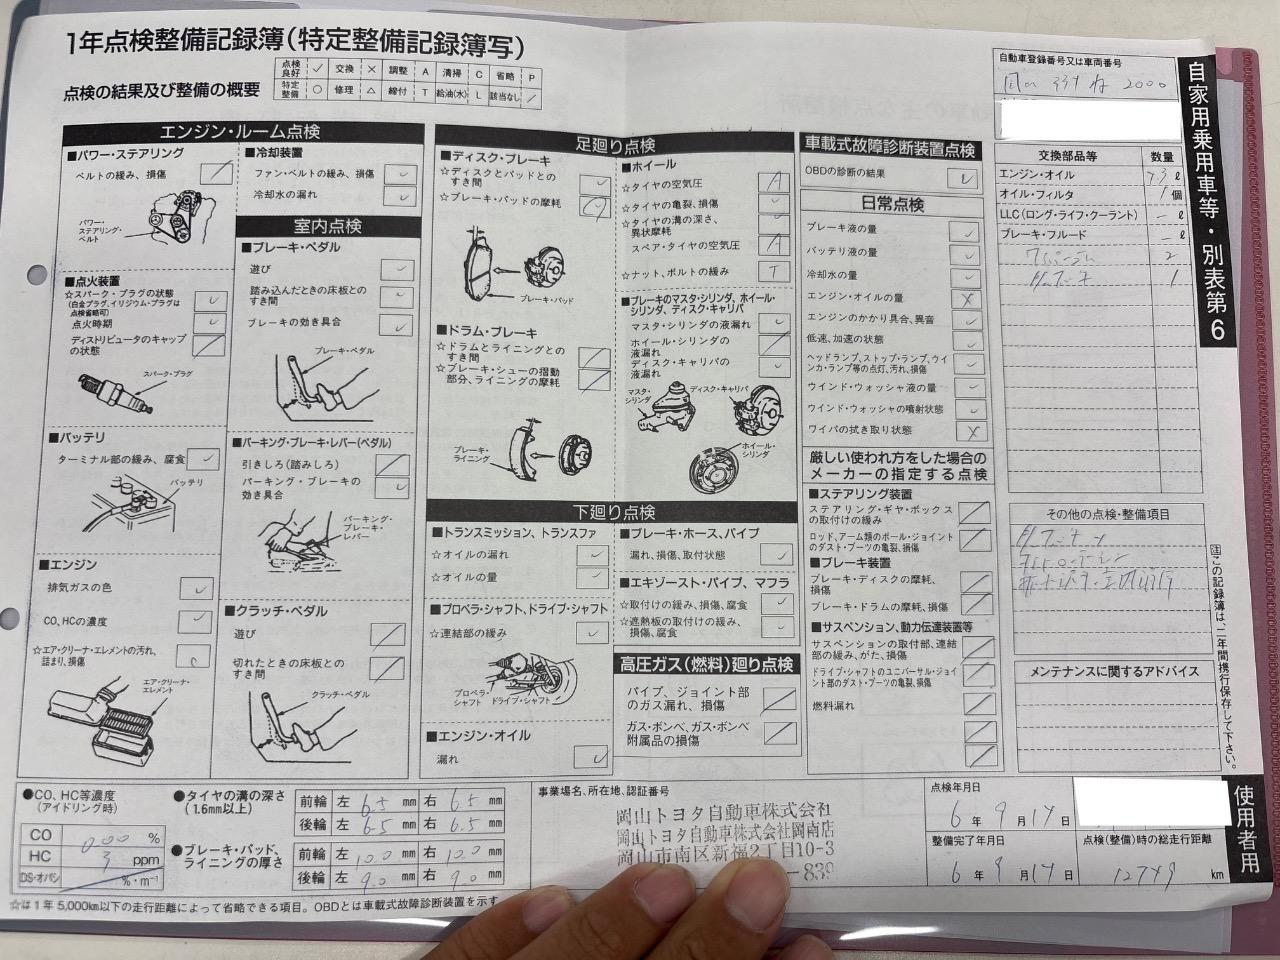 1年点検整備記録簿(特定整備記録簿写)
点検の結果及び整備の概要
点検良好 ✓ 交換 × 調整 A 清掃 C 省略 P
特定整備 ○ 修理 △ 締付 T 給油(水) L 該当なし /
自家用乗用車等・別表第6
自動車登録番号又は車両番号
2000
エンジン・ルーム点検
■パワー・ステアリング
ベルトの緩み、損傷 /
パワー・ステアリング・ベルト
■点火装置
☆スパーク・プラグの状態 ✓
(白金プラグ、イリジウム・プラグは点検省略可)
点火時期 ✓
ディストリビュータのキャップの状態 /
スパーク・プラグ
■バッテリ
ターミナル部の緩み、腐食 ✓
バッテリ
■エンジン
排気ガスの色 ✓
CO、HCの濃度 ✓
☆エア・クリーナ・エレメントの汚れ、詰まり、損傷 C
エア・クリーナ・エレメント
■冷却装置
ファン・ベルトの緩み、損傷 ✓
冷却水の漏れ ✓
室内点検
■ブレーキ・ペダル
遊び ✓
踏み込んだときの床板とのすき間 ✓
ブレーキの効き具合 ✓
ブレーキ・ペダル
■パーキング・ブレーキ・レバー(ペダル)
引きしろ(踏みしろ) /
パーキング・ブレーキの効き具合 ✓
パーキング・ブレーキ・レバー
■クラッチ・ペダル
遊び /
切れたときの床板とのすき間 /
クラッチ・ペダル
足廻り点検
■ディスク・ブレーキ
☆ディスクとパッドとのすき間 ✓
☆ブレーキ・パッドの摩耗
ブレーキ・パッド
■ドラム・ブレーキ
☆ドラムとライニングとのすき間 /
☆ブレーキ・シューの摺動部分、ライニングの摩耗 /
ブレーキ・ライニング
■ホイール
☆タイヤの空気圧 A
☆タイヤの亀裂、損傷 ✓
☆タイヤの溝の深さ、異状摩耗 ✓
スペア・タイヤの空気圧 A
☆ナット、ボルトの緩み T
■ブレーキのマスタ・シリンダ、ホイール・シリンダ、ディスク・キャリパ
マスタ・シリンダの液漏れ ✓
ホイール・シリンダの液漏れ /
ディスク・キャリパの液漏れ ✓
マスタ・シリンダ
ディスク・キャリパ
ホイール・シリンダ
下廻り点検
■トランスミッション、トランスファ
☆オイルの漏れ ✓
☆オイルの量 ✓
■プロペラ・シャフト、ドライブ・シャフト
☆連結部の緩み ✓
プロペラ・シャフト
ドライブ・シャフト
■エンジン・オイル
漏れ ✓
■ブレーキ・ホース、パイプ
漏れ、損傷、取付状態 ✓
■エキゾースト・パイプ、マフラ
☆取付けの緩み、損傷、腐食 ✓
☆遮熱板の取付けの緩み、損傷、腐食 ✓
高圧ガス(燃料)廻り点検
パイプ、ジョイント部のガス漏れ、損傷 /
ガス・ボンベ、ガス・ボンベ附属品の損傷 /
車載式故障診断装置点検
OBDの診断の結果 ✓
日常点検
ブレーキ液の量 ✓
バッテリ液の量 ✓
冷却水の量 ✓
エンジン・オイルの量 ×
エンジンのかかり具合、異音 ✓
低速、加速の状態 ✓
ヘッドランプ、ストップ・ランプ、ウインカ・ランプ等の点灯、汚れ、損傷 ✓
ウインド・ウォッシャ液の量 ✓
ウインド・ウォッシャの噴射状態 ✓
ワイパの拭き取り状態 ×
厳しい使われ方をした場合のメーカーの指定する点検
■ステアリング装置
ステアリング・ギヤ・ボックスの取付けの緩み /
ロッド、アーム類のボール・ジョイントのダスト・ブーツの亀裂、損傷 /
■ブレーキ装置
ブレーキ・ディスクの摩耗、損傷 /
ブレーキ・ドラムの摩耗、損傷 /
■サスペンション、動力伝達装置等
サスペンションの取付部、連結部の緩み、がた、損傷 /
ドライブ・シャフトのユニバーサル・ジョイント部のダスト・ブーツの亀裂、損傷 /
燃料漏れ /
交換部品等 数量
エンジン・オイル ℓ
オイル・フィルタ 1 個
LLC(ロング・ライフ・クーラント) － ℓ
ブレーキ・フルード － ℓ
2
1
その他の点検・整備項目
メンテナンスに関するアドバイス
注 この記録簿は、二年間携行保存して下さい。
使用者用
●CO、HC等濃度(アイドリング時)
CO 0.00 %
HC 3 ppm
DS・オパシ %・m⁻¹
●タイヤの溝の深さ(1.6mm以上)
前輪 左 6.5 mm 右 6.5 mm
後輪 左 6.5 mm 右 6.5 mm
●ブレーキ・パッド、ライニングの厚さ
前輪 左 10.0 mm 右 10.0 mm
後輪 左 9.0 mm 右 9.0 mm
事業場名、所在地、認証番号
岡山トヨタ自動車株式会社
岡山トヨタ自動車株式会社岡南店
岡山市南区新福2丁目10-3
839
点検年月日
6 年 9 月 14 日
整備完了年月日
6 年 9 月 14 日
点検(整備)時の総走行距離
12749 km
☆は1年5,000km以下の走行距離によって省略できる項目。OBDとは車載式故障診断装置を示す